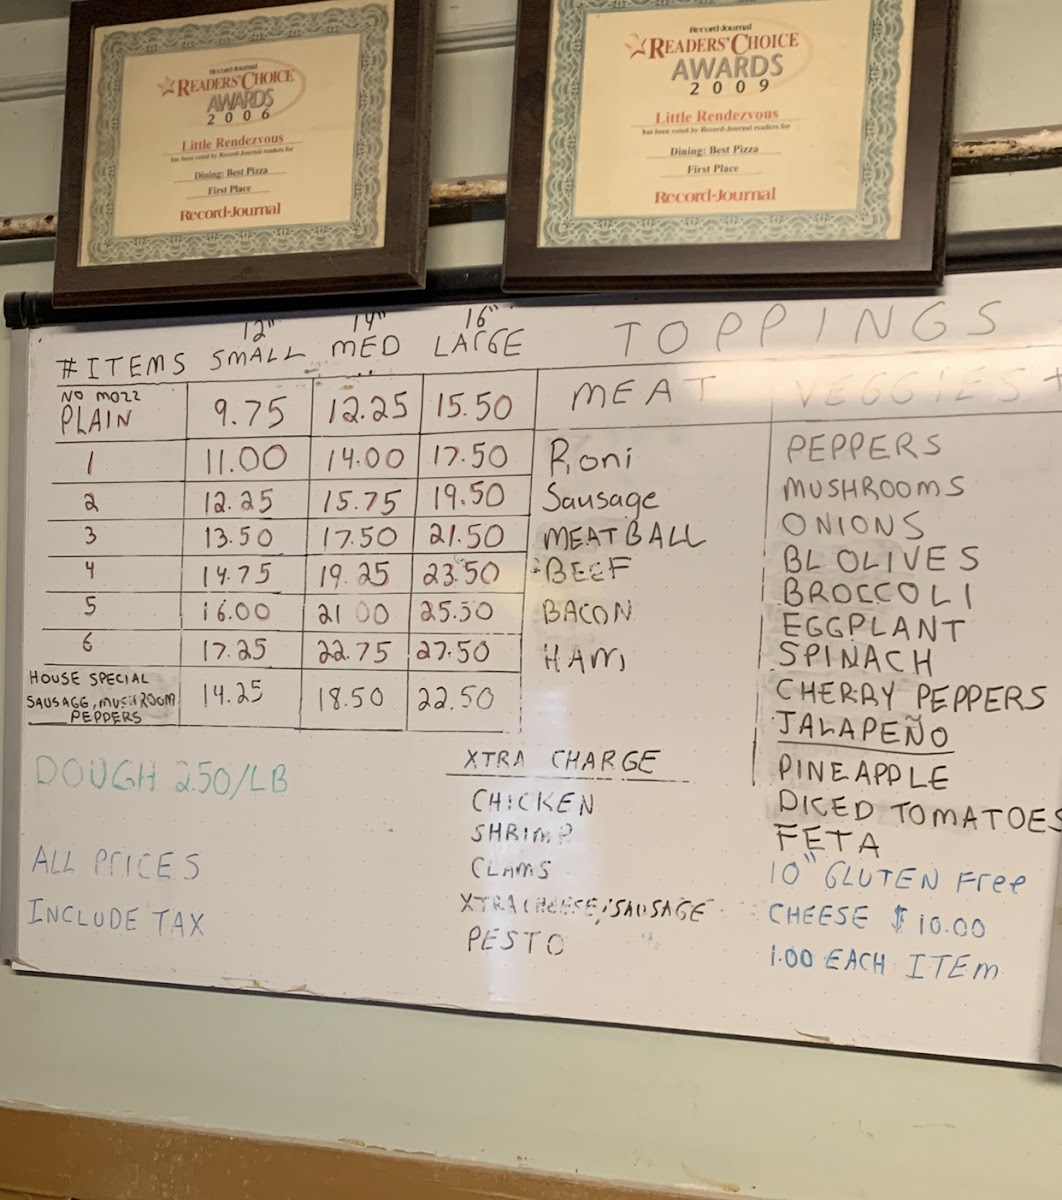 Record-Journal
READERS' CHOICE
AWARDS
2006
Little Rendezvous
has been voted by Record-Journal readers for
Dining: Best Pizza
First Place
Record-Journal
Record-Journal
READERS' CHOICE
AWARDS
2009
Little Rendezvous
has been voted by Record-Journal readers for
Dining: Best Pizza
First Place
Record-Journal
12" 14" 16"
#ITEMS SMALL MED LARGE
NO MOZZ
PLAIN 9.75 12.25 15.50
1 11.00 14.00 17.50
2 12.25 15.75 19.50
3 13.50 17.50 21.50
4 14.75 19.25 23.50
5 16.00 21 00 25.50
6 17.25 22.75 27.50
HOUSE SPECIAL
SAUSAGG, MUSHROOM
PEPPERS 14.25 18.50 22.50
DOUGH 2.50/LB
ALL PRICES
INCLUDE TAX
TOPPINGS
MEAT
Roni
Sausage
MEATBALL
BEEF
BACON
HAM
XTRA CHARGE
CHICKEN
SHRIMP
CLAMS
XTRA CHEESE/SAUSAGE
PESTO
VEGGIES +
PEPPERS
MUSHROOMS
ONIONS
BL OLIVES
BROCCOLI
EGGPLANT
SPINACH
CHERRY PEPPERS
JALAPEÑO
PINEAPPLE
DICED TOMATOES
FETA
10" GLUTEN Free
CHEESE $10.00
1.00 EACH ITEM